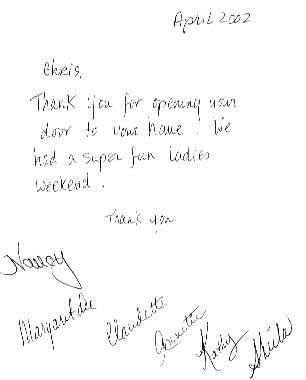 April 2002
Chris,
Thank you for opening your
door to your home! We
had a super fun ladies
weekend.
Thank you
Nancy
Margaret
Claudette
Kathy
Sheila